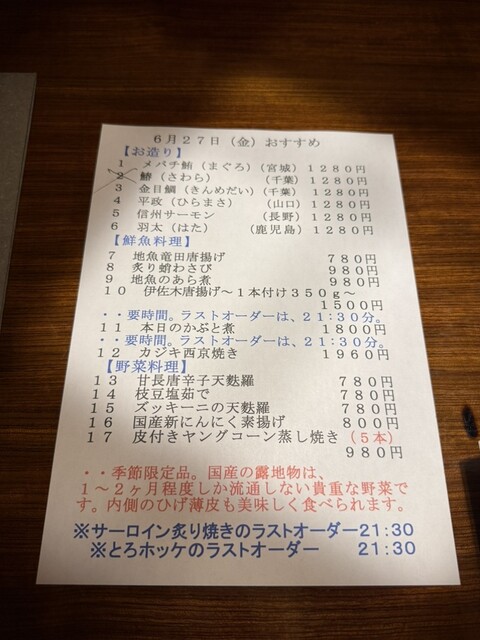 6月27日（金）おすすめ
【お造り】
1 メバチ鮪（まぐろ）（宮城）1280円
2 鰆（さわら）（千葉）1280円
3 金目鯛（きんめだい）（千葉）1280円
4 平政（ひらまさ）（山口）1280円
5 信州サーモン（長野）1280円
6 羽太（はた）（鹿児島）1280円
【鮮魚料理】
7 地魚竜田唐揚げ 780円
8 炙り蛸わさび 980円
9 地魚のあら煮 980円
10 伊佐木唐揚げ～1本付け350g～
1500円
・・要時間。ラストオーダーは、21:30分。
11 本日のかぶと煮 1800円
・・要時間。ラストオーダーは、21:30分。
12 カジキ西京焼き 1960円
【野菜料理】
13 甘長唐辛子天麩羅 780円
14 枝豆塩茹で 780円
15 ズッキーニの天麩羅 780円
16 国産新にんにく素揚げ 800円
17 皮付きヤングコーン蒸し焼き（5本）
980円
・・季節限定品。国産の露地物は、
1～2ヶ月程度しか流通しない貴重な野菜で
す。内側のひげ薄皮も美味しく食べられます。
※サーロイン炙り焼きのラストオーダー21:30
※とろホッケのラストオーダー 21:30